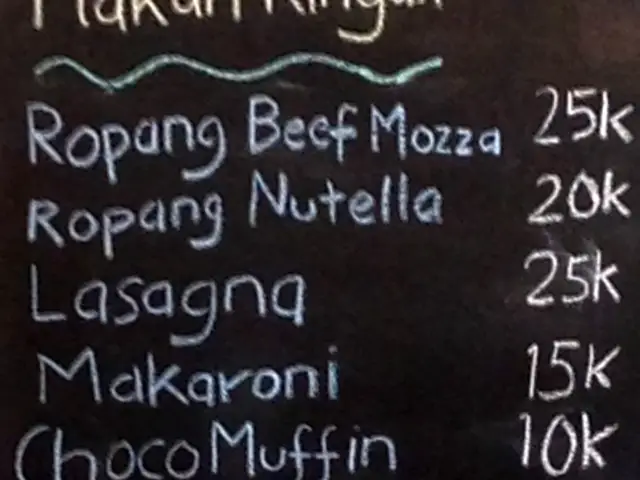 Makan Ringan
Ropang Beef Mozza 25k
Ropang Nutella 20k
Lasagna 25k
Makaroni 15k
Choco Muffin 10k